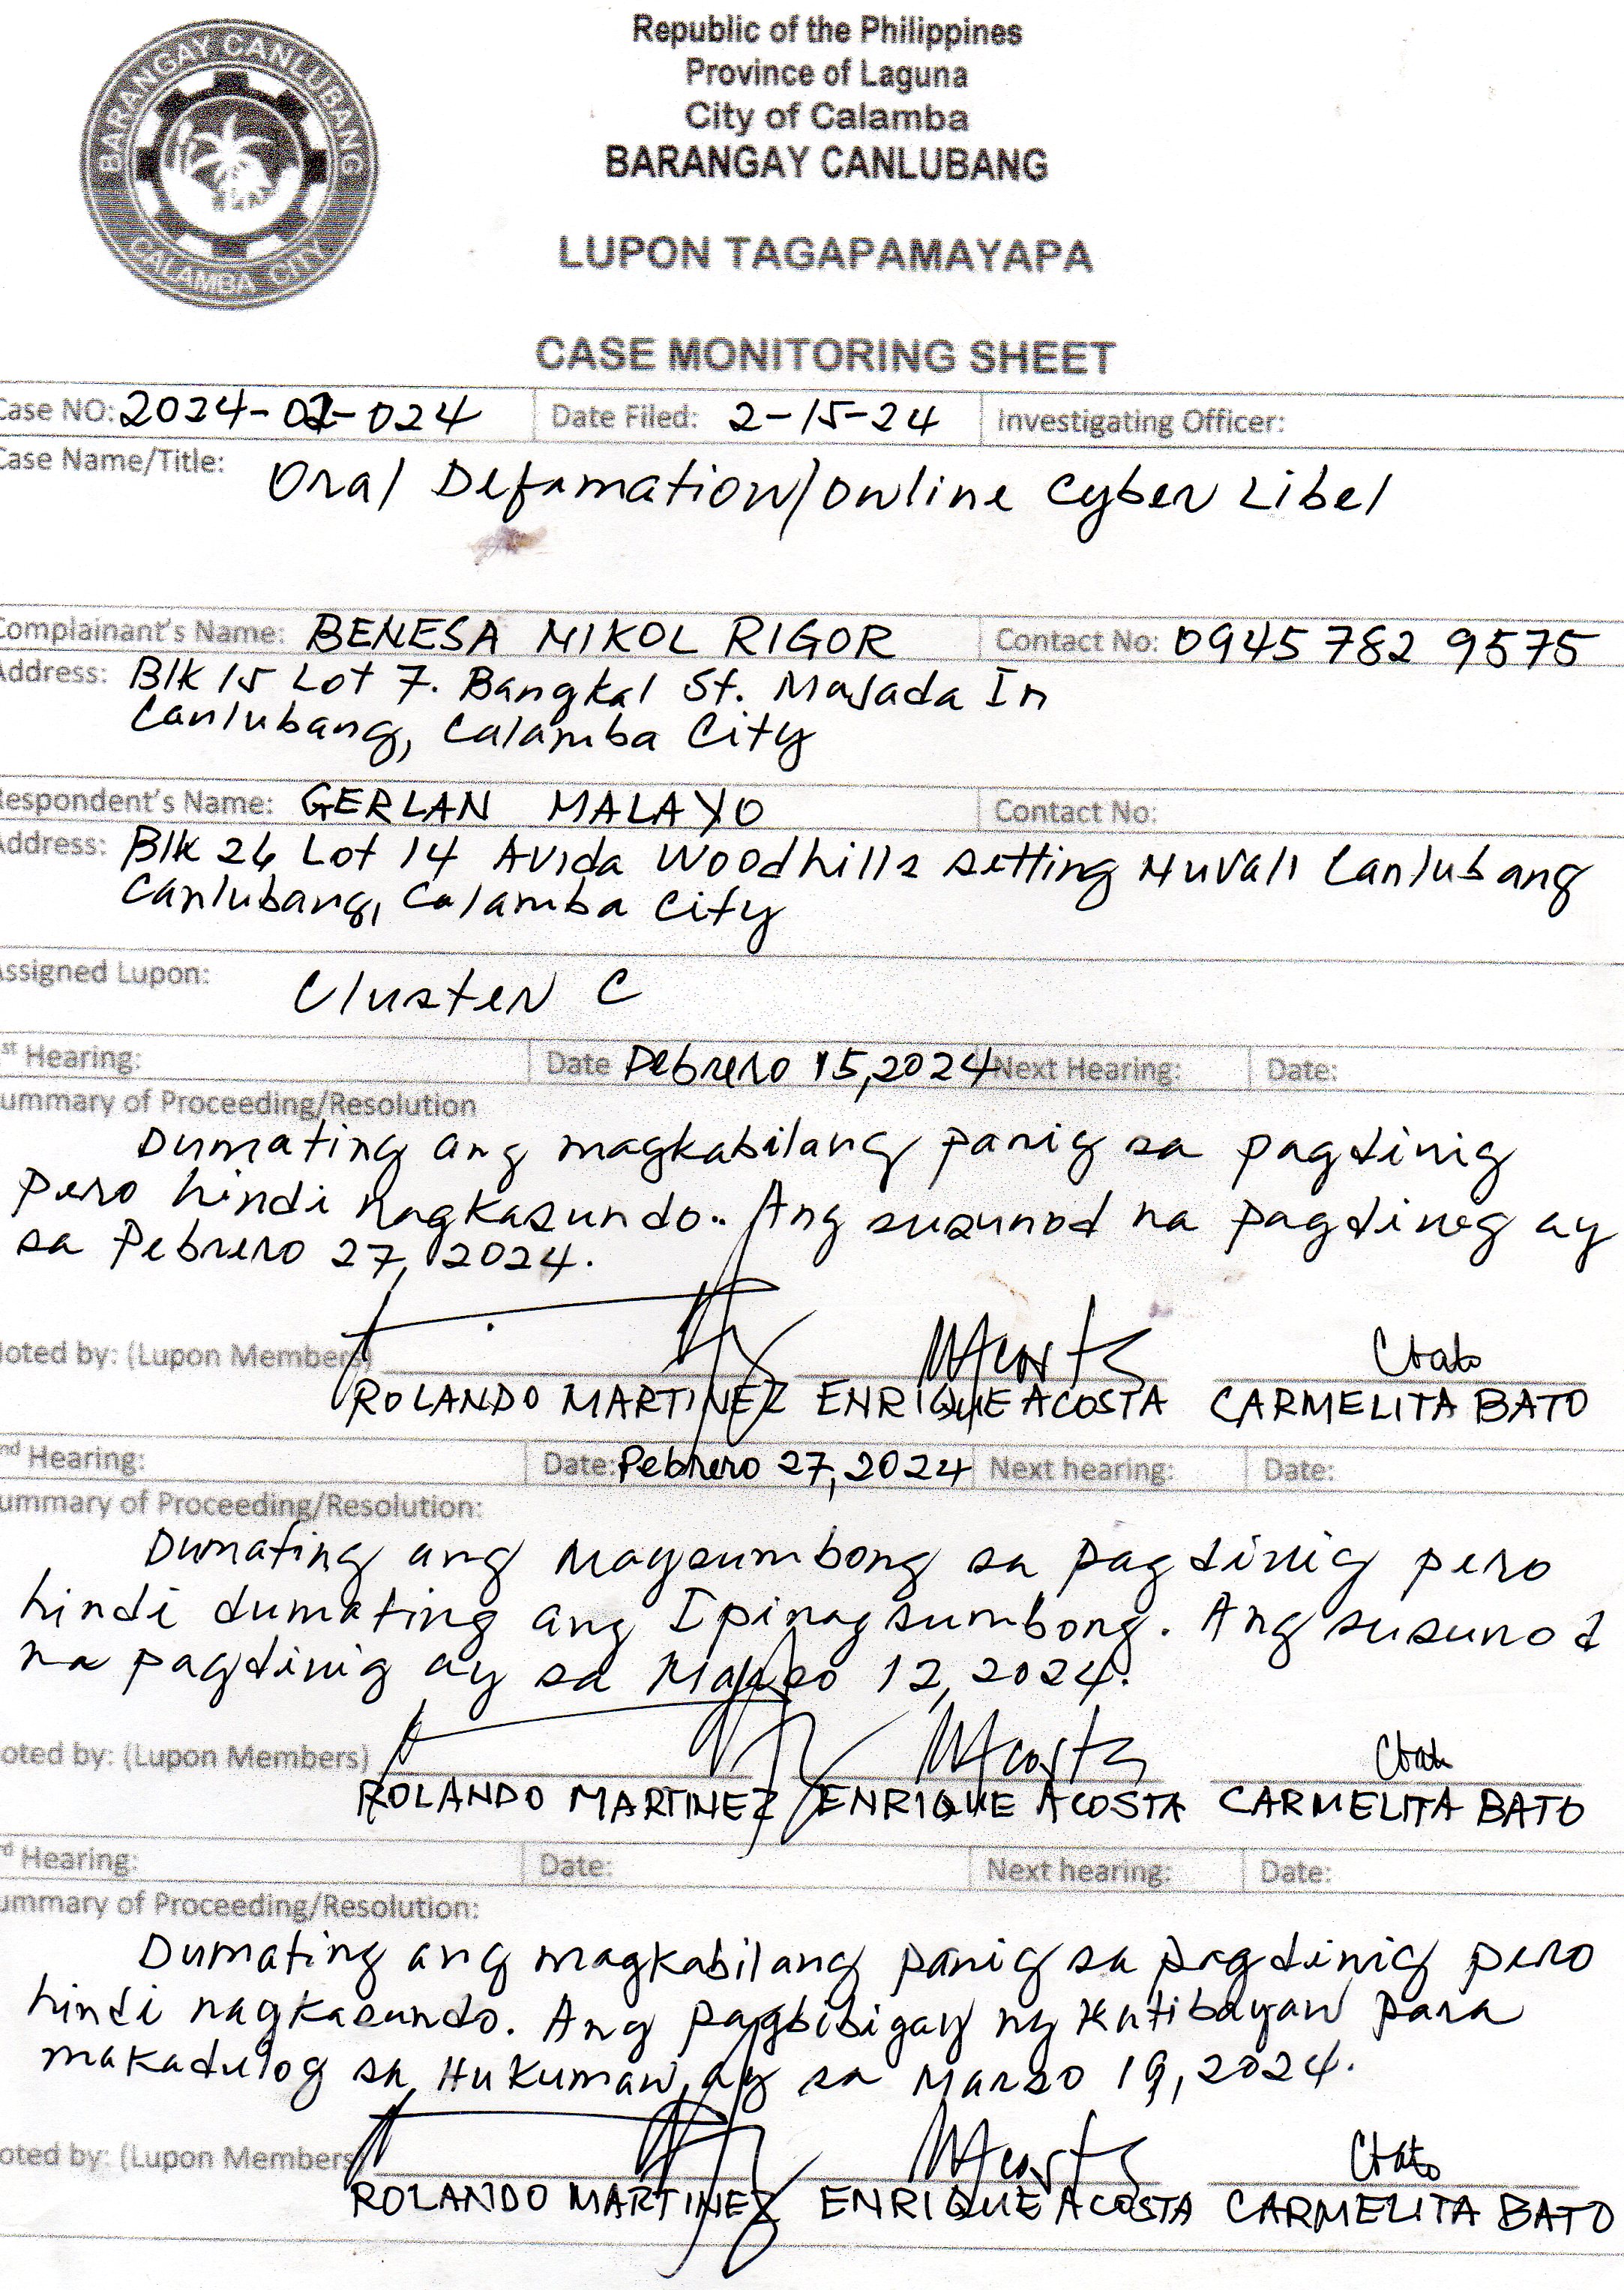 BARANGAY CANLUBANG
CALAMBA CITY
Republic of the Philippines
Province of Laguna
City of Calamba
BARANGAY CANLUBANG
LUPON TAGAPAMAYAPA
CASE MONITORING SHEET
Case NO: 2024-02-024 Date Filed: 2-15-24 Investigating Officer:
Case Name/Title: Oral Defamation/Online Cyber Libel
Complainant's Name: BENESA NIKOL RIGOR Contact No: 0945 782 9575
Address: Blk 15 Lot 7. Bangkal St. Majada In
Canlubang, Calamba City
Respondent's Name: GERLAN MALAYO Contact No:
Address: Blk 26 Lot 14 Avida Woodhills Setting Nuvali Canlubang
Canlubang, Calamba City
Assigned Lupon: Cluster C
st Hearing: Date Pebrero 15, 2024 Next Hearing: Date:
ummary of Proceeding/Resolution
Dumating ang magkabilang panig sa pagdinig
pero hindi nagkasundo.. Ang susunod na pagdineg ay
sa Pebrero 27, 2024.
Noted by: (Lupon Members)
ROLANDO MARTINEZ ENRIQUE ACOSTA CARMELITA BATO
nd Hearing: Date: Pebrero 27, 2024 Next hearing: Date:
ummary of Proceeding/Resolution:
Dumating ang Magsumbong sa pagdinig pero
hindi dumating ang Ipinagsumbong. Ang susunod
na pagdinig ay sa Marso 12, 2024.
oted by: (Lupon Members)
ROLANDO MARTINEZ ENRIQUE ACOSTA CARMELITA BATO
rd Hearing: Date: Next hearing: Date:
ummary of Proceeding/Resolution:
Dumating ang magkabilang panig sa pagdinig pero
hindi nagkasundo. Ang pagbibigay ng Katibayan para
makadulog sa Hukuman, ay sa Marso 19, 2024.
oted by: (Lupon Members
ROLANDO MARTINEZ ENRIQUE ACOSTA CARMELITA BATO